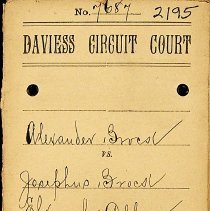 No. 7687 2195
DAVIESS CIRCUIT COURT
Alexander Brocd
VS.
Josephus Brocd